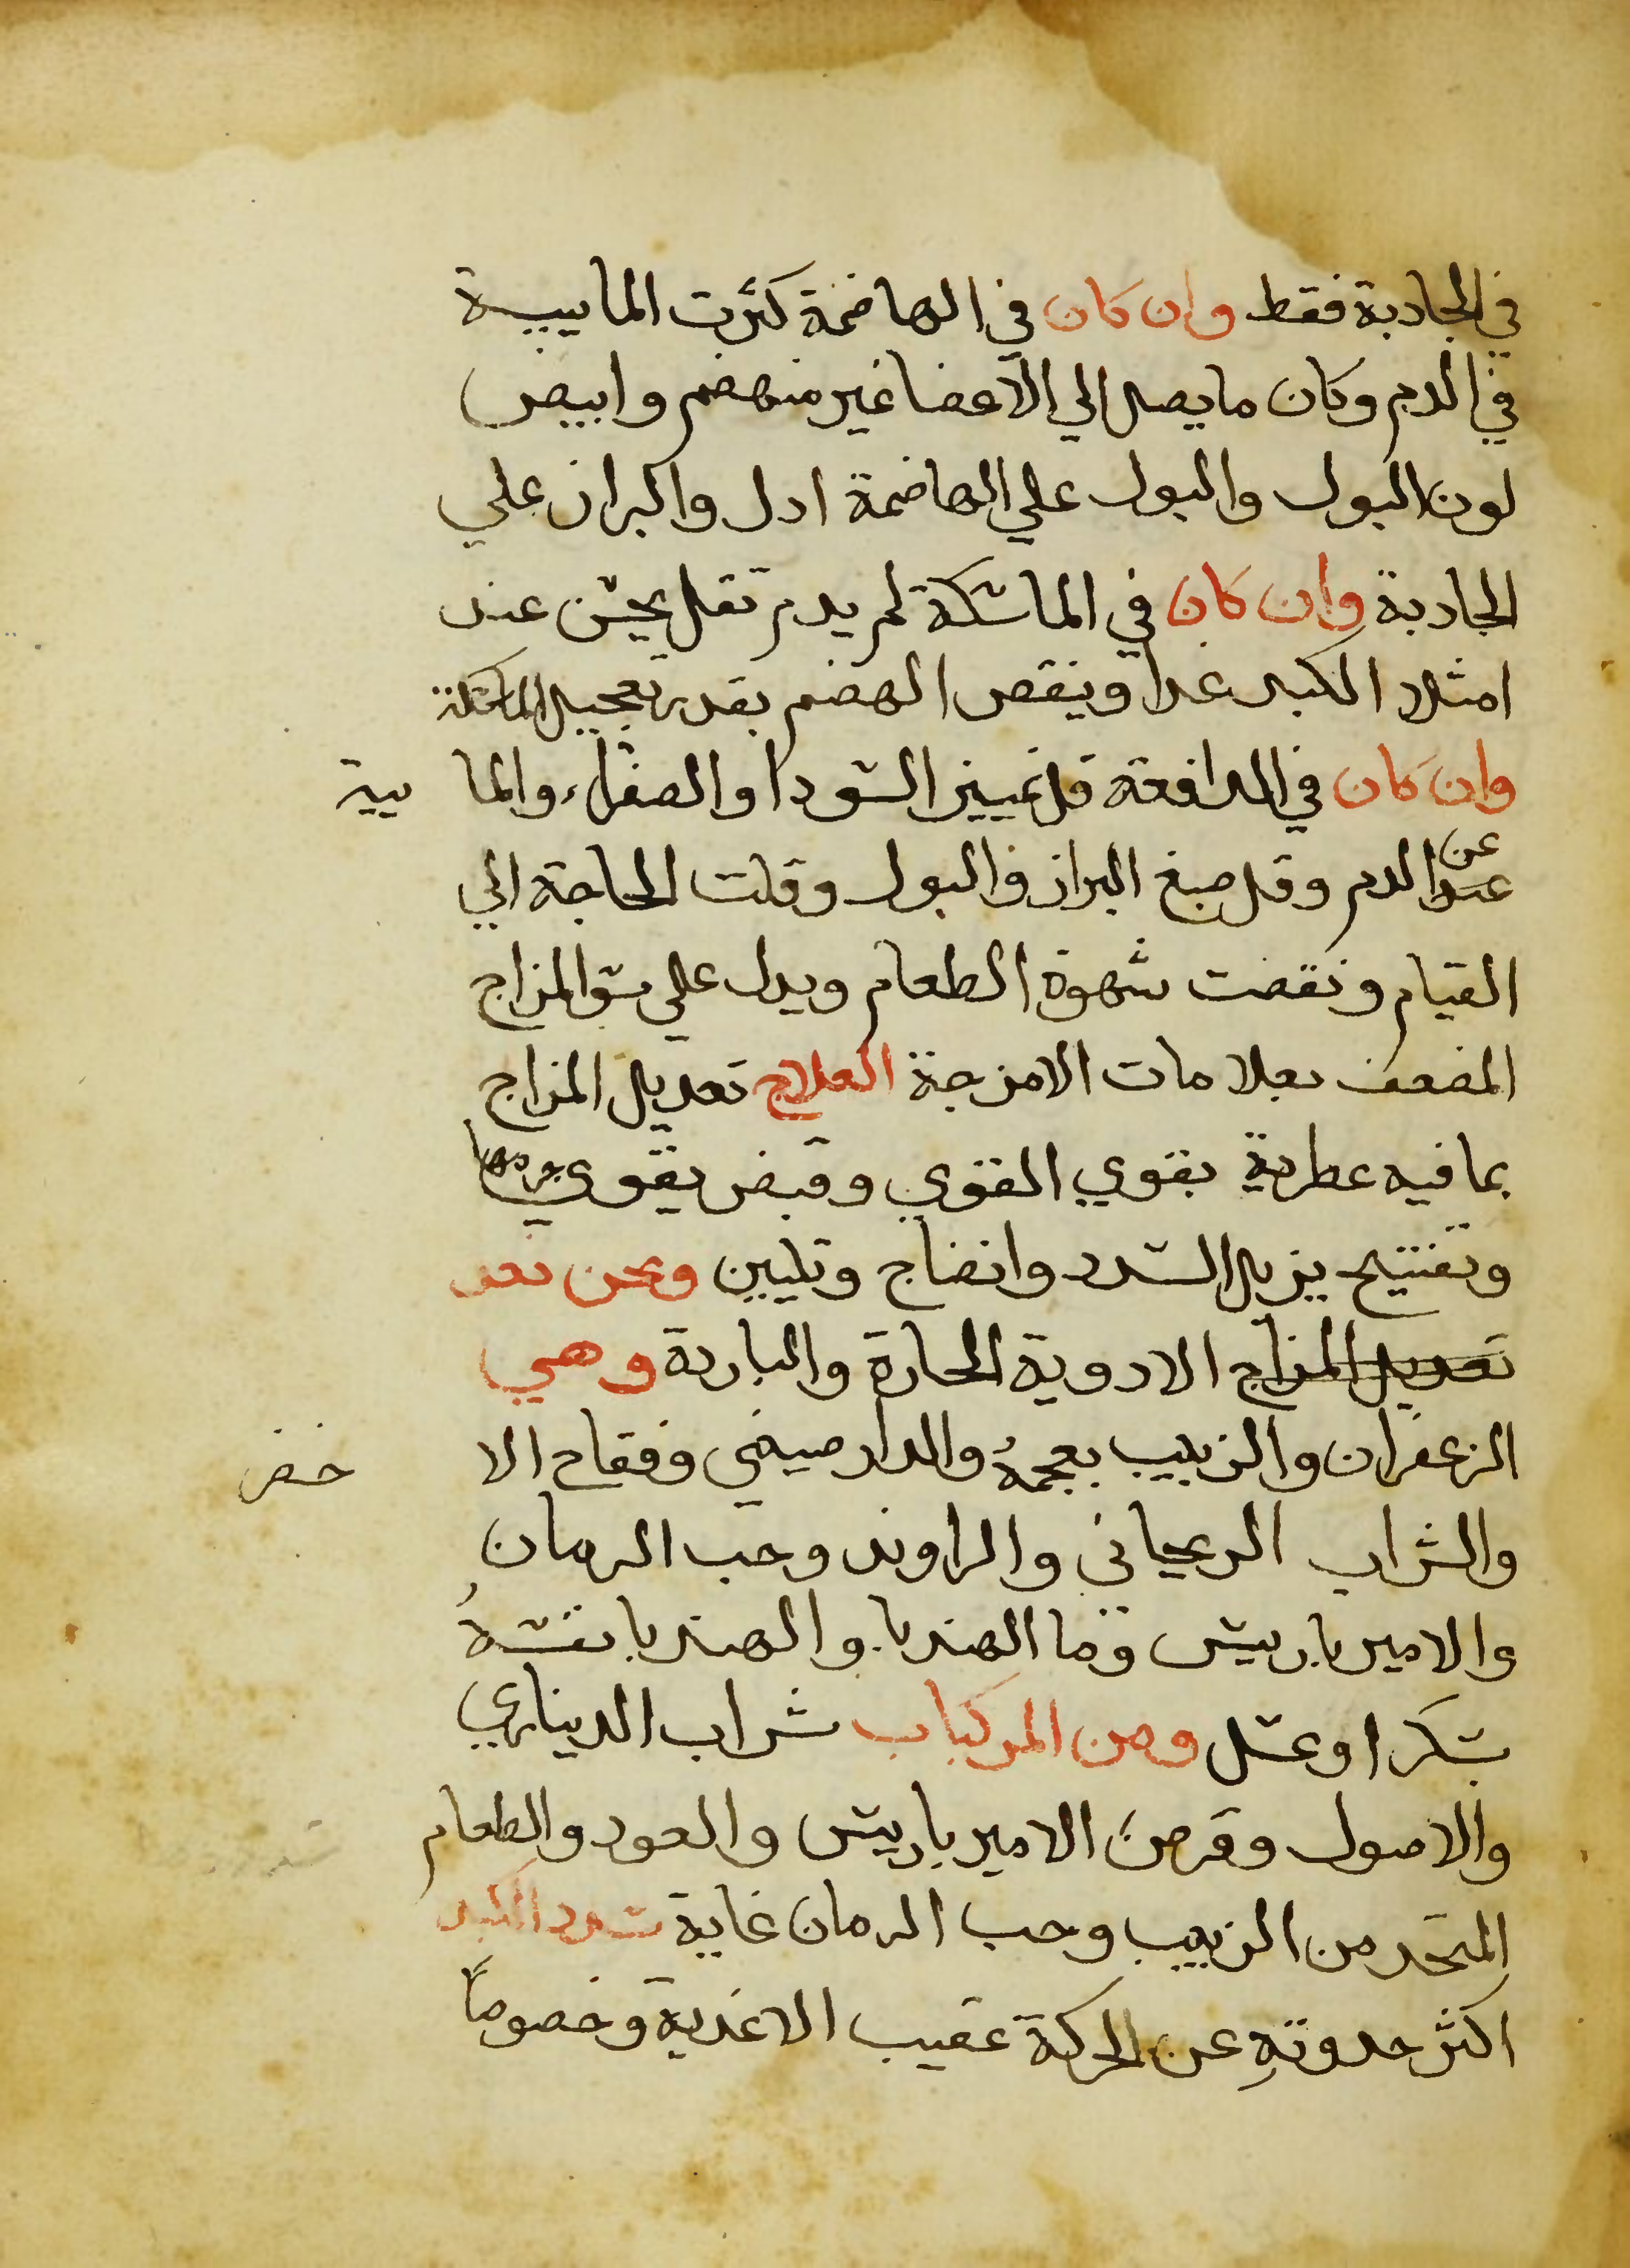 في الجادبة فقط وان كان في الهاضمة كثرت الماييية
في الدم وكان ما يصل الي الاعضا غير منهضم وابيض
لون البول والبول علي الهاضمة ادل والبراز علي
الجادبة وان كان في الماسكة لم يدم تقل يحس عند
امتلاد الكبد غدا وينقص الهضم بقدر تعجيل الماسكة
وان كان في المدافعة قل تمييز السودا والصفراء والما يية
عن
عند الدم وقل صبغ البراز والبول وقلت الحاجة الي
القيام ونقصت شهوة الطعام ويدل علي سو المزاج
المضعف بعلامات الامزجة العلاج تعديل المزاج
بما فيه عطرية يقوي القوي وقبض يقوي جرمها
وتفتيح يزيل السدد وانضاج وتليين ونحن نعد
تعديل المزاج الادوية الحارة والباردة وهي
الزعفران والزبيب بعجمهُ والدارصيني وفقاح الا ذخر
والشراب الريحاني والراوند وحب الرمان
والاميرباريس وما الهندبا والهندبا نفسهُ
بسكر او عسل ومن المركبات شراب الديناري
والاصول وقرص الاميرباريس والعود والطعام
المتخد من الزبيب وحب الرمان غاية سدد الكبد
اكثر حدوثهِ عن الحركة عقيب الاغدية وخصوصاً